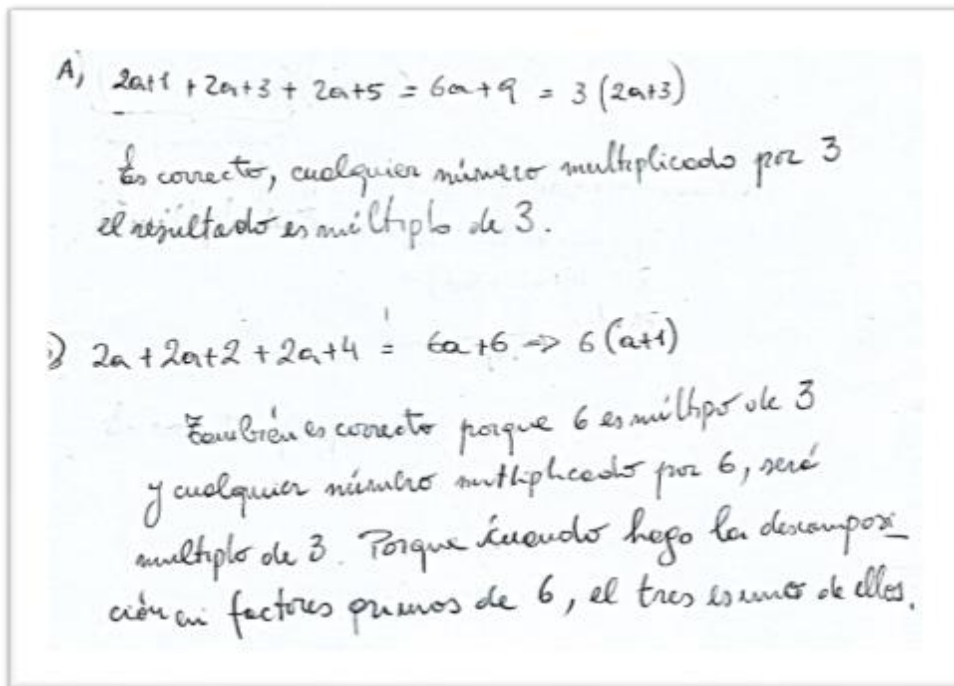 A) 2a+1 + 2a+3 + 2a+5 = 6a+9 = 3(2a+3)
Es correcto, cualquier número multiplicado por 3
el resultado es múltiplo de 3.
) 2a + 2a+2 + 2a+4 = 6a+6 => 6(a+1)
También es correcto porque 6 es múltipo de 3
y cualquier número multiplicado por 6, será
multiplo de 3. Porque cuando hago la descomposi_
ción en factores primos de 6, el tres es uno de ellos.